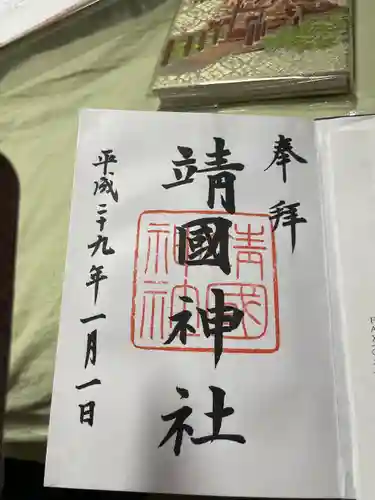 奉拝
靖國神社
平成二十九年一月一日
靖國神社